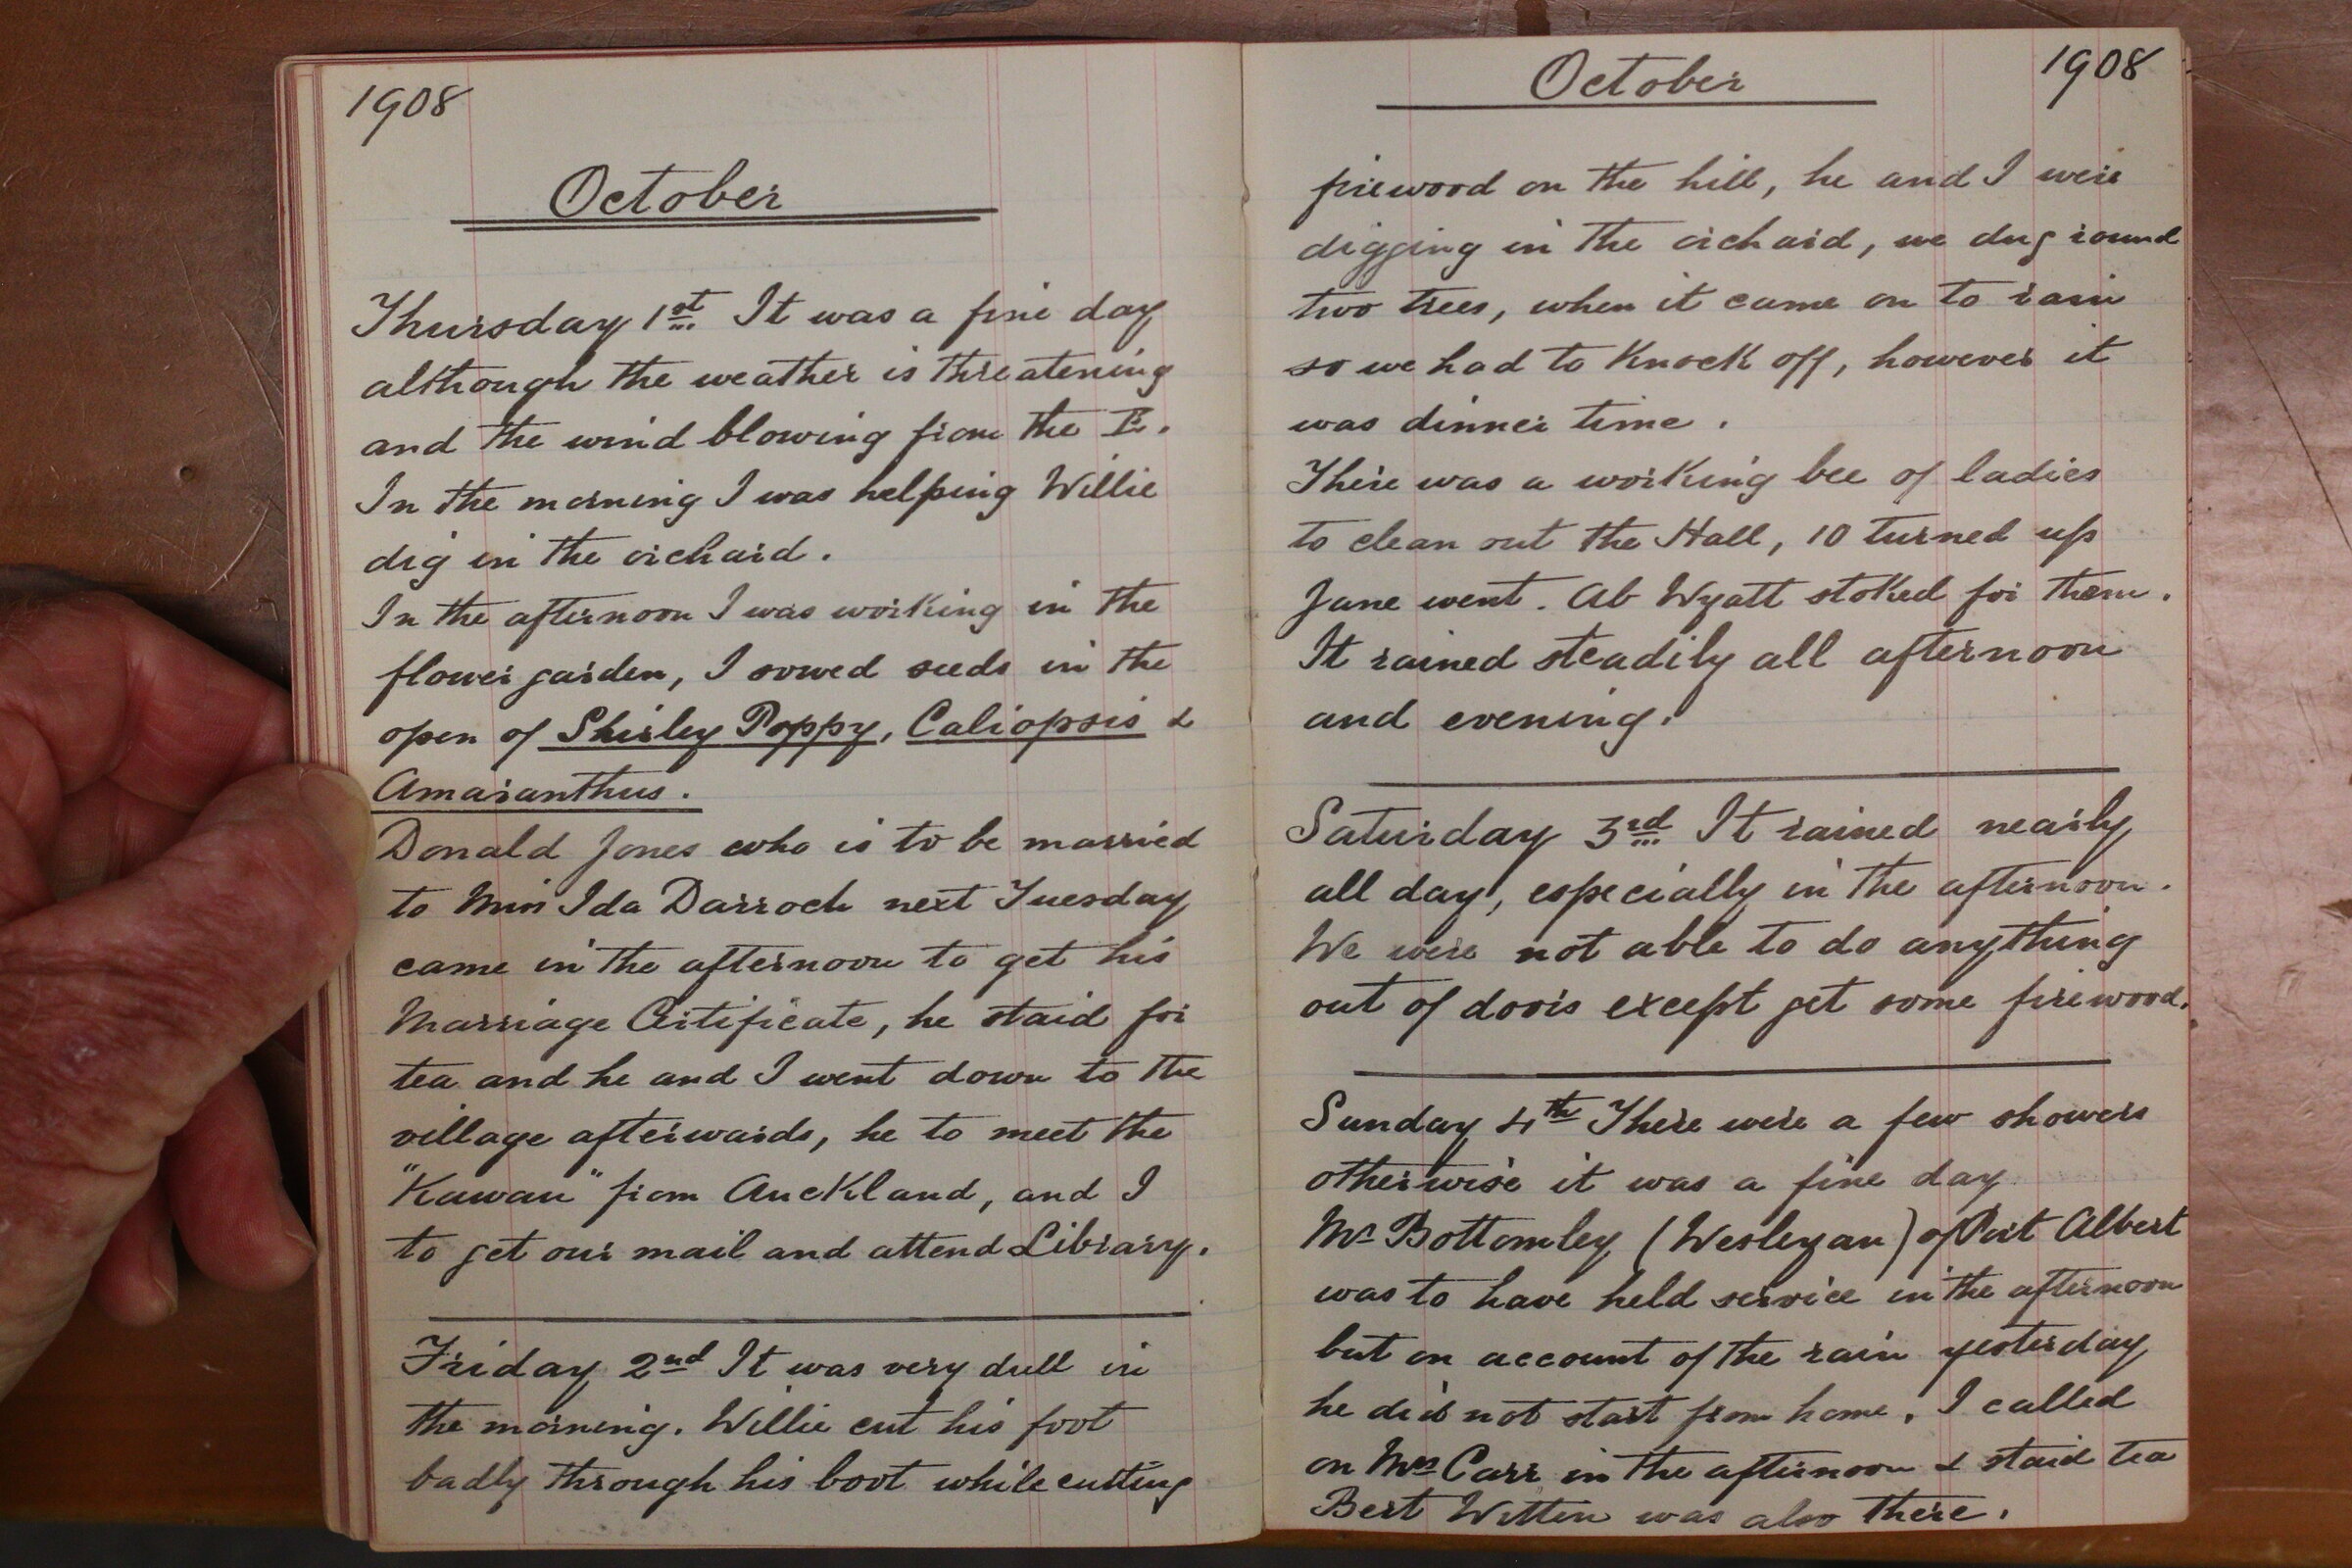 1908
October
Thursday 1st It was a fine day
although the weather is threatening
and the wind blowing from the E.
In the morning I was helping Willie
dig in the orchard.
In the afternoon I was working in the
flower garden, I sowed seeds in the
open of Shirley Poppy, Caliopsis &
Amaranthus.
Donald Jones who is to be married
to Miss Ida Darroch next Tuesday
came in the afternoon to get his
Marriage Certificate, he staid for
tea and he and I went down to the
village afterwards, he to meet the
"Kawau" from Auckland, and I
to get our mail and attend Library.
Friday 2nd It was very dull in
the morning. Willie cut his foot
badly through his boot while cutting
October 1908
firewood on the hill, he and I were
digging in the orchard, we dug round
two trees, when it came on to rain
so we had to Knock off, however it
was dinner time.
There was a working bee of ladies
to clean out the Hall, 10 turned up
Jane went. Ab Wyatt stoked for them.
It rained steadily all afternoon
and evening.
Saturday 3rd It rained nearly
all day, especially in the afternoon.
We were not able to do anything
out of doors except get some firewood.
Sunday 4th There were a few showers
otherwise it was a fine day
Mr Bottomley (Wesleyan) of Port Albert
was to have held service in the afternoon
but on account of the rain yesterday
he did not start from home. I called
on Mrs Carr in the afternoon & staid tea
Bert Witten was also there.